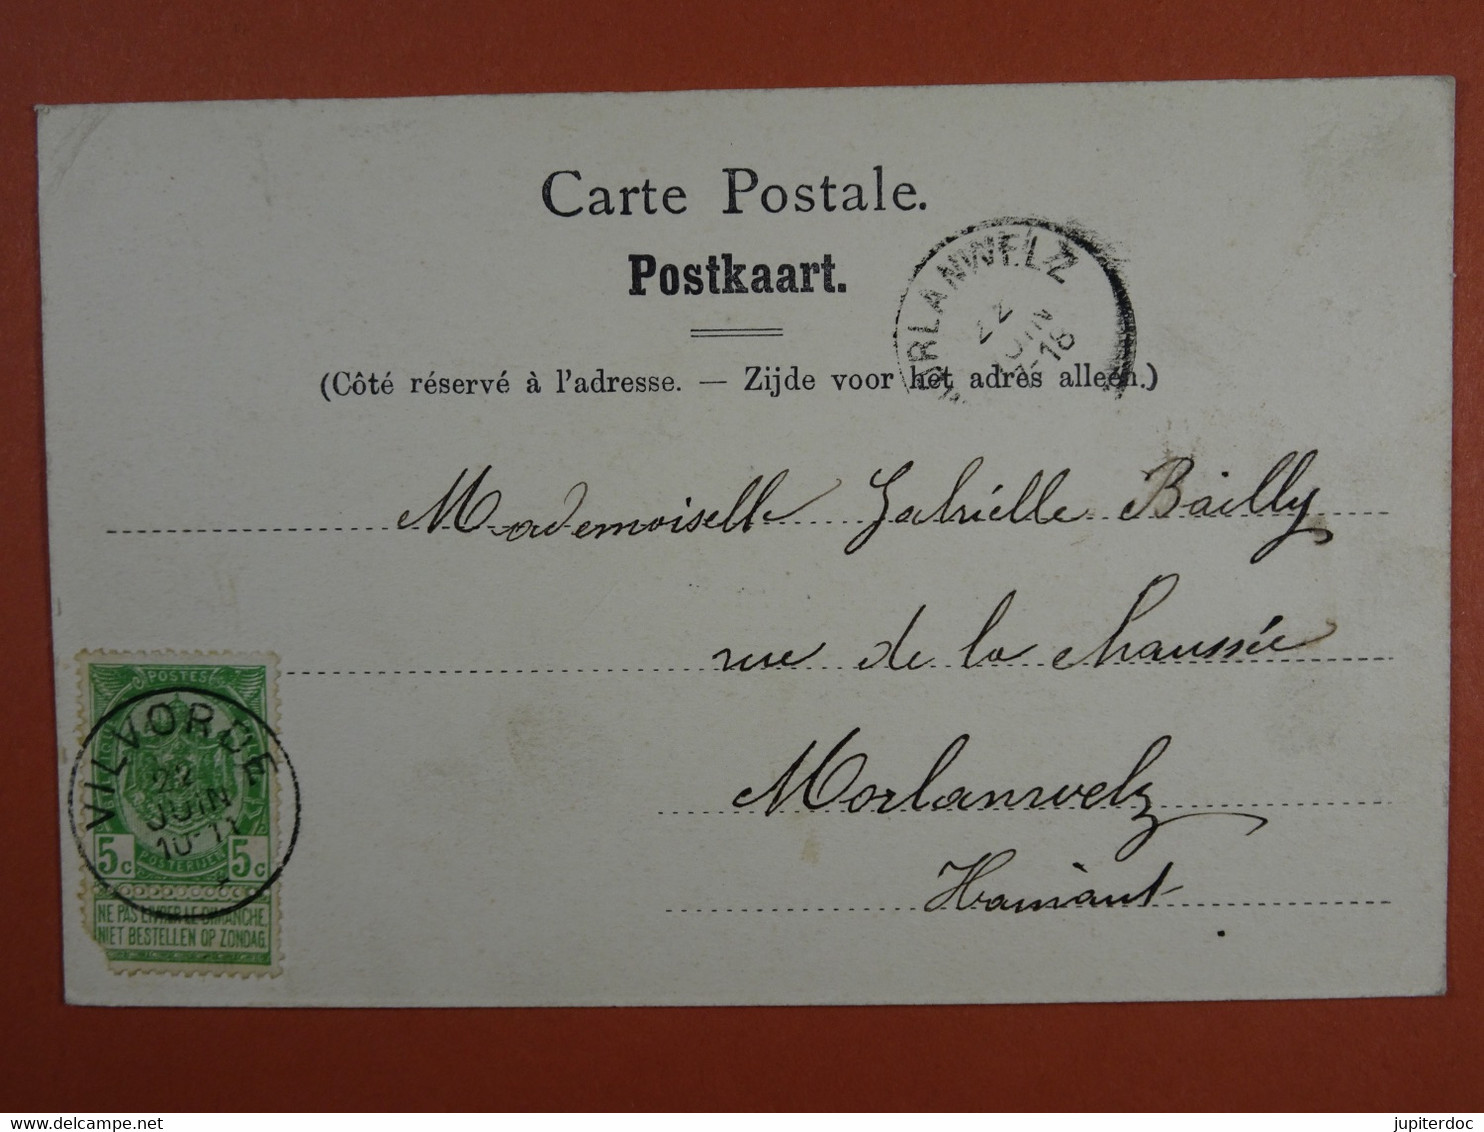 Carte Postale.
Postkaart.
(Côté réservé à l'adresse. — Zijde voor het adres alleen.)
ORLANWELZ
22
JUIN
18
Mademoiselle Gabriélle Bailly
rue de la Chaussée
Morlanwelz
Hainaut
POSTES
VILVORDE
22
JUIN
10-11
5c 5c
POSTERIJEN
NE PAS LIVRER LE DIMANCHE
NIET BESTELLEN OP ZONDAG
delcampe.net
jupiterdoc